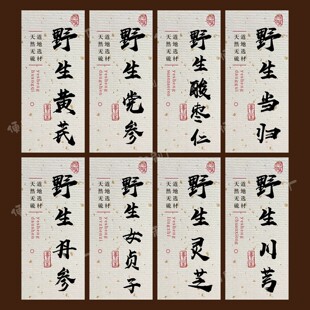 野生黄芪
道地选材
天然无硫
野生党参
道地选材
天然无硫
野生酸枣仁
道地选材
天然无硫
野生当归
道地选材
天然无硫
野生丹参
道地选材
天然无硫
野生女贞子
道地选材
天然无硫
野生灵芝
道地选材
天然无硫
野生川芎
道地选材
天然无硫